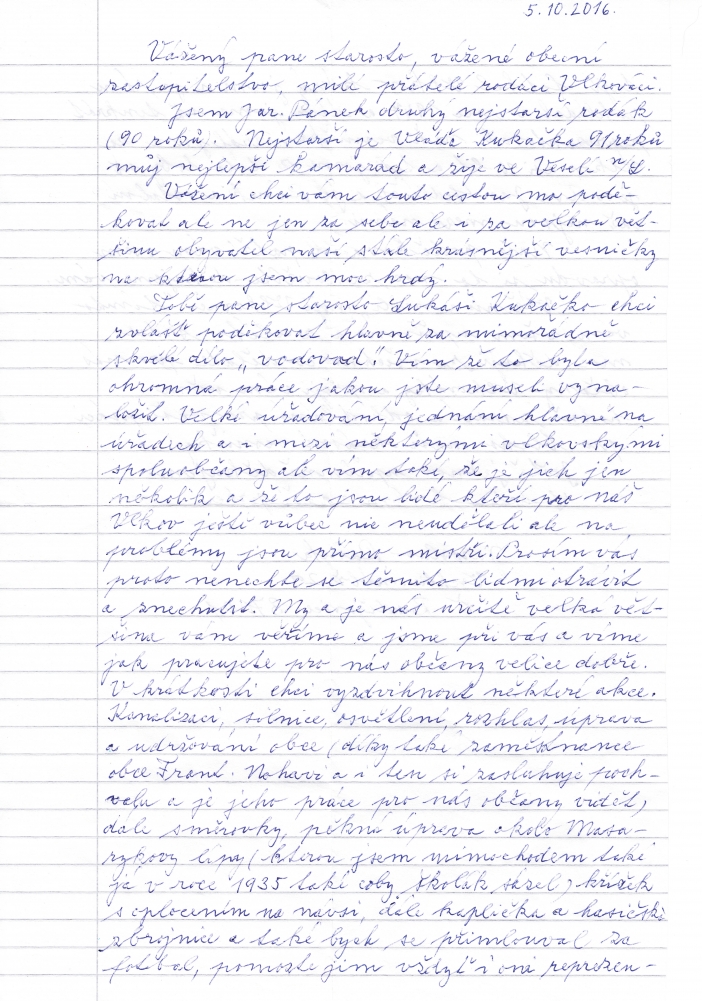 5.10.2016.
Vážený pane starosto, vážené obecní
zastupitelstvo, milí přátelé rodáci Vlkováci.
Jsem Jar. Pánek druhý nejstarší rodák
(90 roků). Nejstarší je Vláďa Kukačka 91 roků
můj nejlepší kamarád a žije ve Veselí n/L.
Vážení chci vám touto cestou mo podě-
kovat ale ne jen za sebe ale i za velkou vět-
šinu obyvatel naší stále krásnější vesničky
na kterou jsem moc hrdý.
Tobě pane starosto Lukáši Kukačko chci
zvlášť poděkovat hlavně za mimořádně
skvělé dílo „vodovod". Vím že to byla
ohromná práce jakou jste museli vyna-
ložit. Velké úřadování, jednání hlavně na
úřadech a i mezi některými vlkovskými
spoluobčany ale vím také, že je jich jen
několik a že to jsou lidé kteří pro náš
Vlkov ještě vůbec nic neudělali ale na
problémy jsou přímo mistři. Prosím vás
proto nenechte se těmito lidmi otrávit
a znechutit. My a je nás určitě velká vět-
šina vám věříme a jsme při vás a víme
jak pracujete pro nás občany velice dobře.
V krátkosti chci vyzdvihnout některé akce.
Kanalizaci, silnice, osvětlení, rozhlas, úprava
a udržování obce (díky také zaměstnance
obce Frant. Nohavi a i ten si zasluhuje poch-
valu a je jeho práce pro nás občany vidět)
dále směrovky, pěkná úprava okolo Masa-
rykovy lípy (kterou jsem mimochodem také
já v roce 1935 také coby školák sázel) křížek
s oplocením na návsi, dále kaplička a hasičská
zbrojnice a také bych se přimlouval za
fotbal, pomozte jim vždyť i oni reprezen-